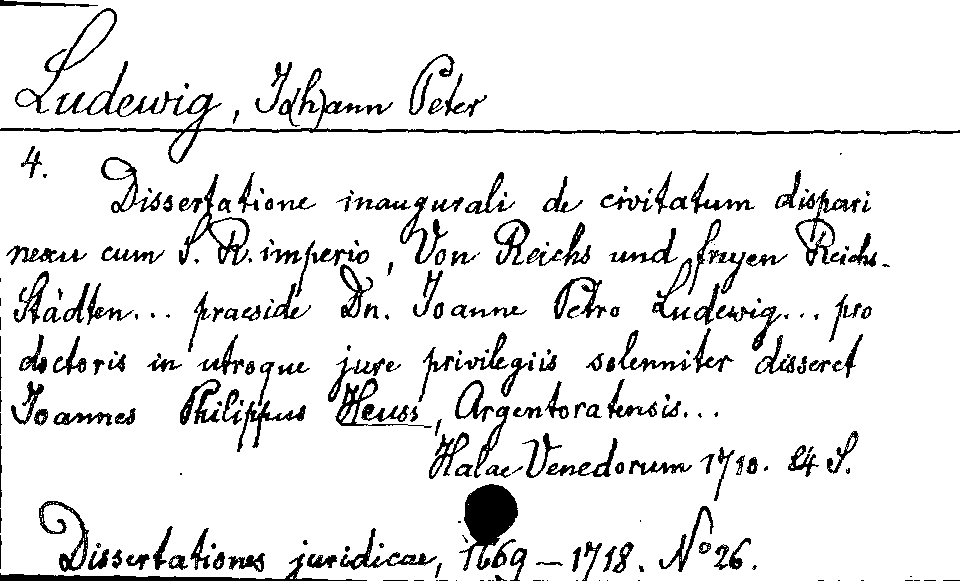 Ludewig, Jo(h)ann Peter
4.
Dissertatione inaugurali de civitatum dispari
nexu cum S. R. imperio, Von Reichs und freyen Reichs-
Städten... praeside Dn. Joanne Petro Ludewig... pro
doctoris in utroque jure privilegiis solenniter disseret
Joannes Philippus Heuss, Argentoratensis...
Halae Venedorum 1710. 84 S.
Dissertationes juridicae, 1669 – 1718. No 26.